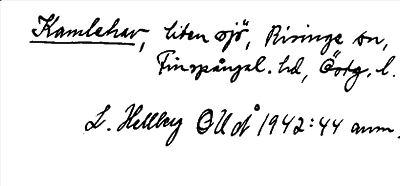 Kamlehav, liten sjö, Risinge sn,
Finspångal. hd, Östg. l.
L. Hellberg OUÅ 1942:44 anm.